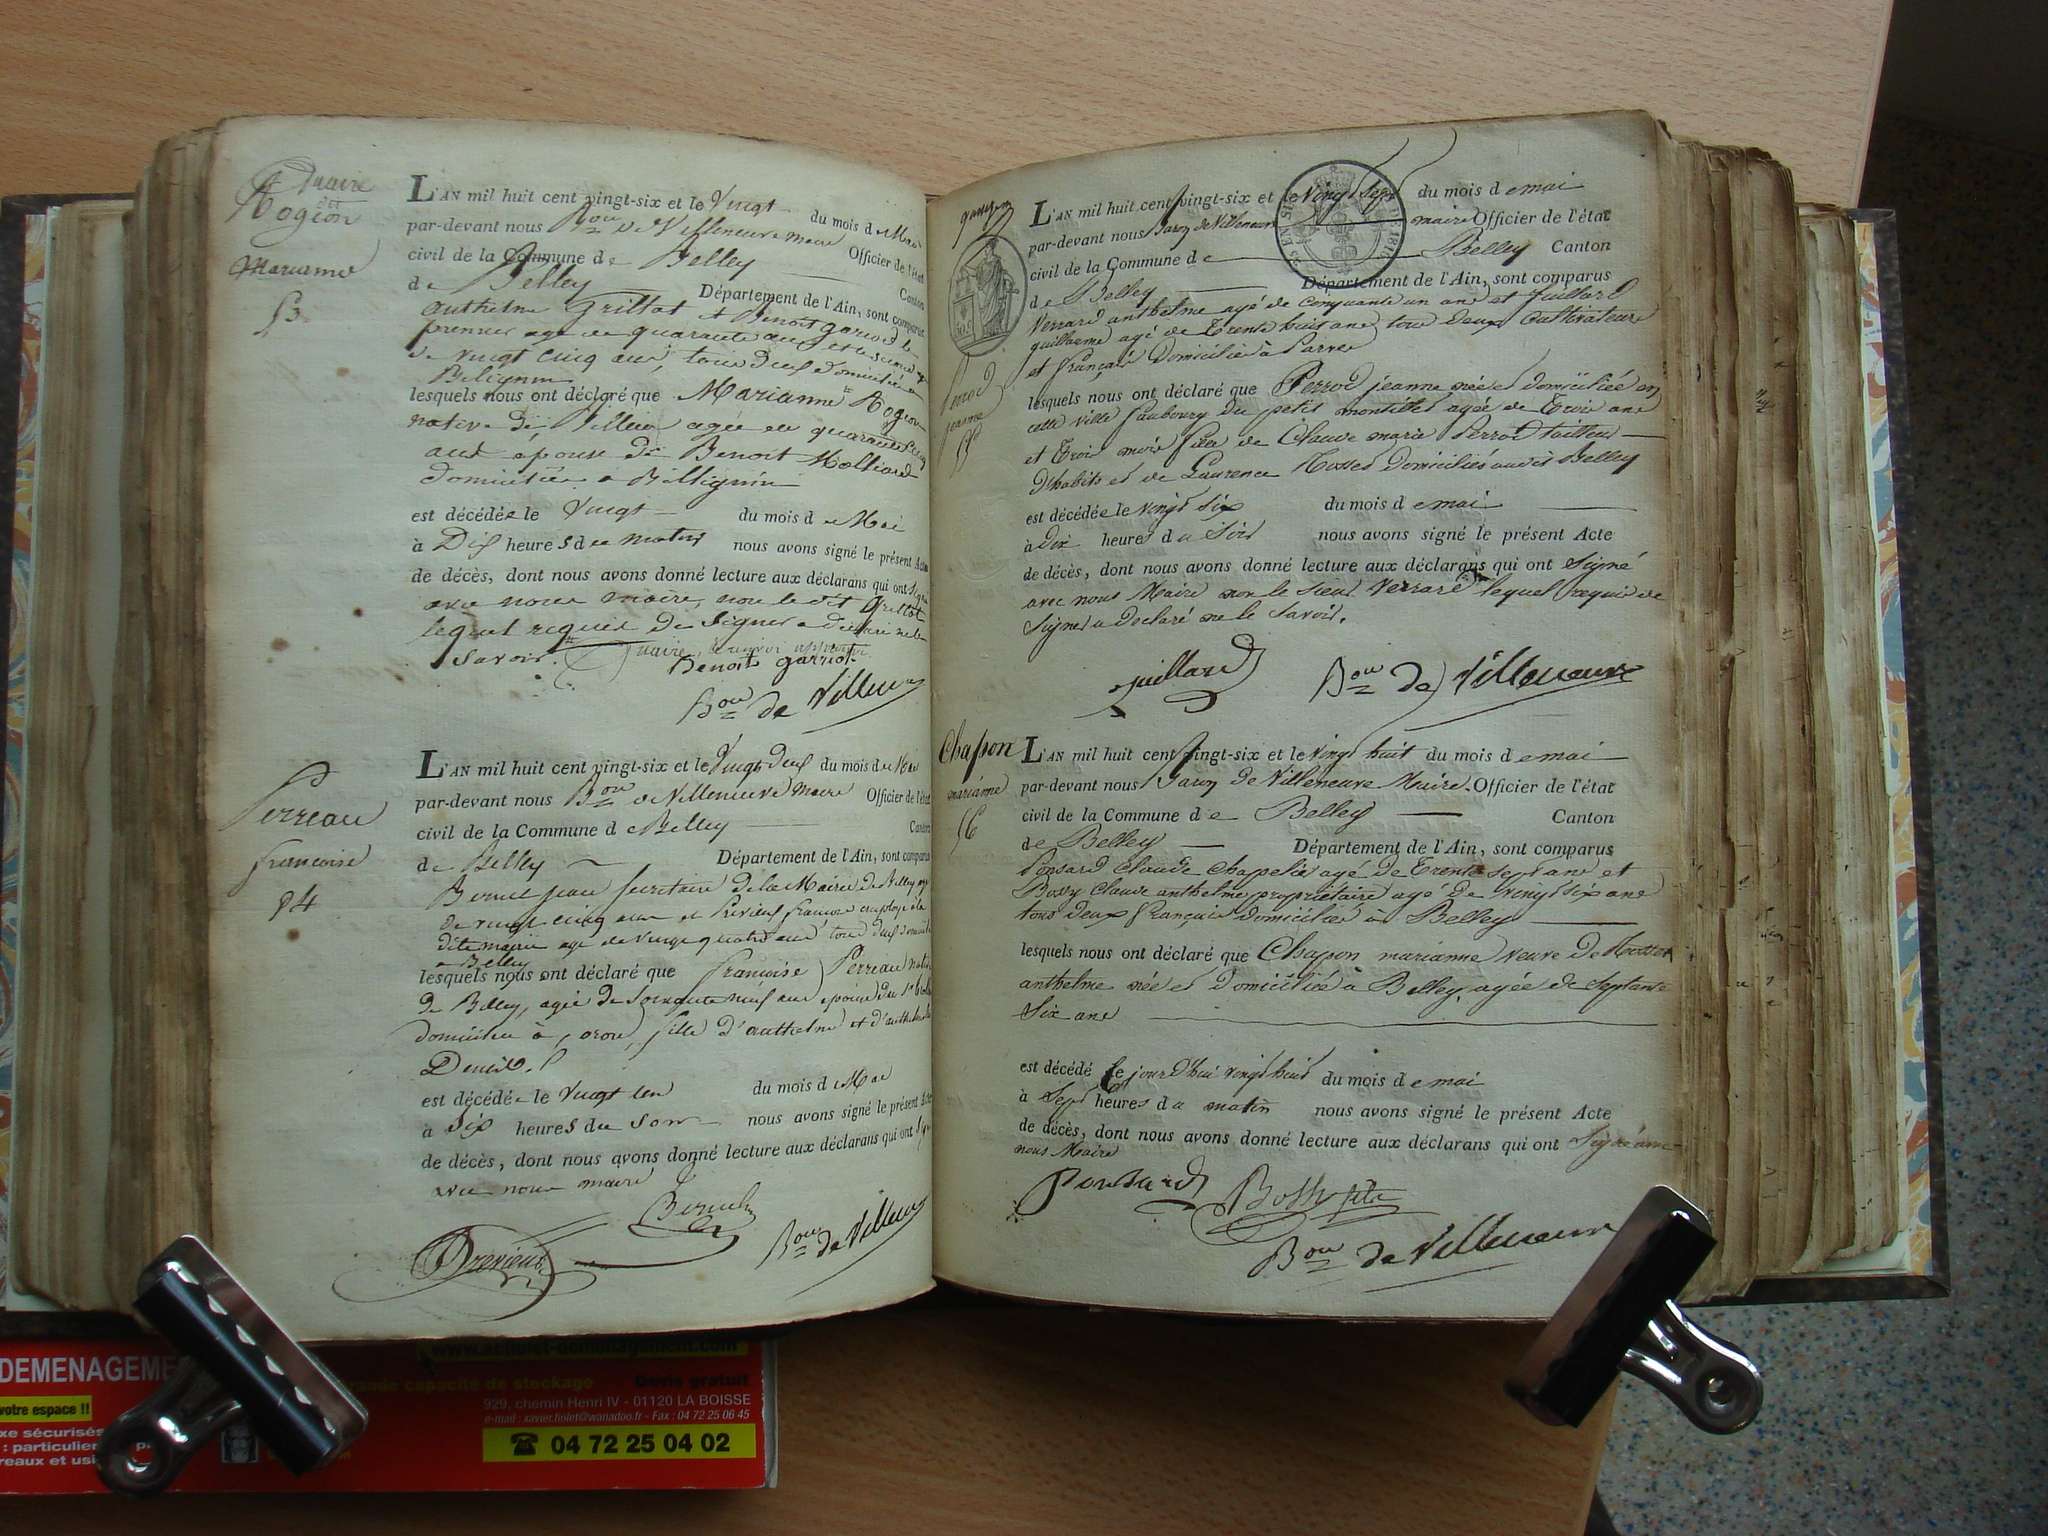 Rogeon
Marianne
53
L'AN mil huit cent vingt-six et le Vingt du mois de Mai
par-devant nous Bon de Villeneuve maire Officier de l'état
civil de la Commune de Belley Canton
de Belley Département de l'Ain, sont comparus
Anthelme Grillot et Benoit garriot le
premier agé de quarante ans et le second
de vingt cinq ans, tous deux domiciliés
Billignin
lesquels nous ont déclaré que Marianne Rogeon
native de agée de quarante cinq
ans epouse de Benoit Molliard
domiciliée a Billignin
est décédée le Vingt du mois de Mai
à Dix heures du matin nous avons signé le présent Acte
de décès, dont nous avons donné lecture aux déclarans qui ont signé
avec nous maire, non le dit Grillot
lequel requis de signer a déclaré ne le
savoir.
Benoit garriot
Bon de Villeneuve
Perreau
francoise
54
L'AN mil huit cent vingt-six et le Vingt deux du mois de Mai
par-devant nous Bon de Villeneuve maire Officier de l'état
civil de la Commune de Belley Canton
de Belley Département de l'Ain, sont comparus
jean Secretaire de la Mairie de Belley agé
de vingt cinq ans et francois employé à la
dite mairie agé de vingt quatre ans tous deux
a Belley
lesquels nous ont déclaré que francoise Perreau native
de Belley, agée de ans epouse du
domiciliée à fille d'anthelme et d'anthelmette
est décédée le vingt un du mois de Mai
à dix heures du soir nous avons signé le présent Acte
de décès, dont nous avons donné lecture aux déclarans qui ont signé
avec nous maire
Bon de Villeneuve
L'AN mil huit cent vingt-six et le Vingt Sept du mois de mai
par-devant nous Baron de Villeneuve maire Officier de l'état
civil de la Commune de Belley Canton
de Belley Département de l'Ain, sont comparus
Verrard anthelme agé de cinquante un ans et Juillard
guillaume agé de trente huit ans tous deux Cultivateurs
et français domiciliés à Parves
Perrod
jeanne
55
lesquels nous ont déclaré que Perrod jeanne née et domiciliée en
cette ville faubourg du petit agée de trois ans
et trois mois fille de Claude marie Perrod tailleur
d'habits et de Laurence domiciliés audit Belley
est décédée le vingt six du mois de mai
à dix heures du Soir nous avons signé le présent Acte
de décès, dont nous avons donné lecture aux déclarans qui ont Signé
avec nous Maire non le sieur Verrard lequel requis de
Signer a déclaré ne le Savoir.
juillard Bon de Villeneuve
Chapon
marianne
56
L'AN mil huit cent vingt-six et le vingt huit du mois de mai
par-devant nous Baron de Villeneuve Maire. Officier de l'état
civil de la Commune de Belley Canton
de Belley Département de l'Ain, sont comparus
Ponsard Claude Chapelier agé de Trente Sept ans et
Bossy Claude anthelme propriétaire agé de vingt six ans
tous deux français domiciliés à Belley
lesquels nous ont déclaré que Chapon marianne veuve de
anthelme née et domiciliée à Belley, agée de Septante
Six ans
est décédé Le jour d'hui vingt huit du mois de mai
à Sept heures du matin nous avons signé le présent Acte
de décès, dont nous avons donné lecture aux déclarans qui ont Signé avec
nous Maire
Ponsard Bossy fils
Bon de Villeneuve
DEMENAGEME
votre espace !!
grande capacité de stockage Devis gratuit
929, chemin Henri IV - 01120 LA BOISSE
e-mail : xavier.fiolet@wanadoo.fr - Fax : 04 72 25 06 45
04 72 25 04 02
xe sécurisés
: particulier
reaux et usi